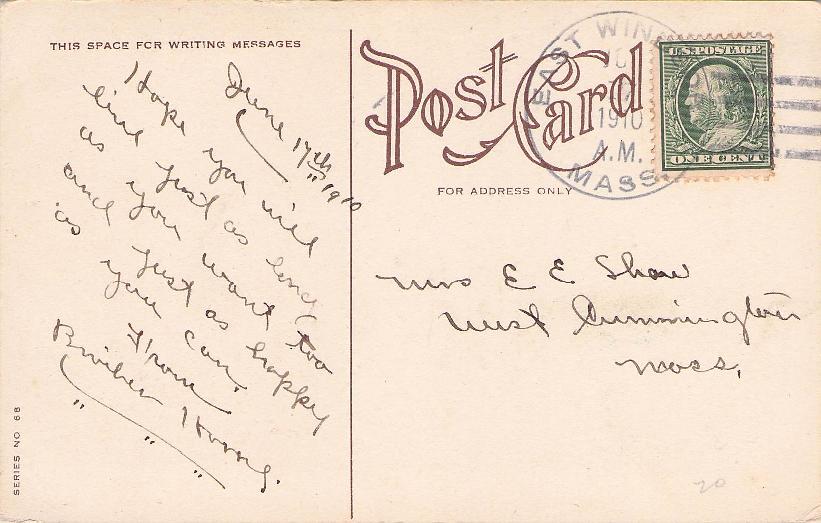 THIS SPACE FOR WRITING MESSAGES
June 17th 1910
Hope you will
live just as long
as you want too
and just as happy
as you can.
From
SERIES NO 68
Post Card
FOR ADDRESS ONLY
EAST WIN
1910
A.M.
MASS.
U.S. POSTAGE
ONE CENT
Mrs E E Shaw
West Cummington
Mass.
20